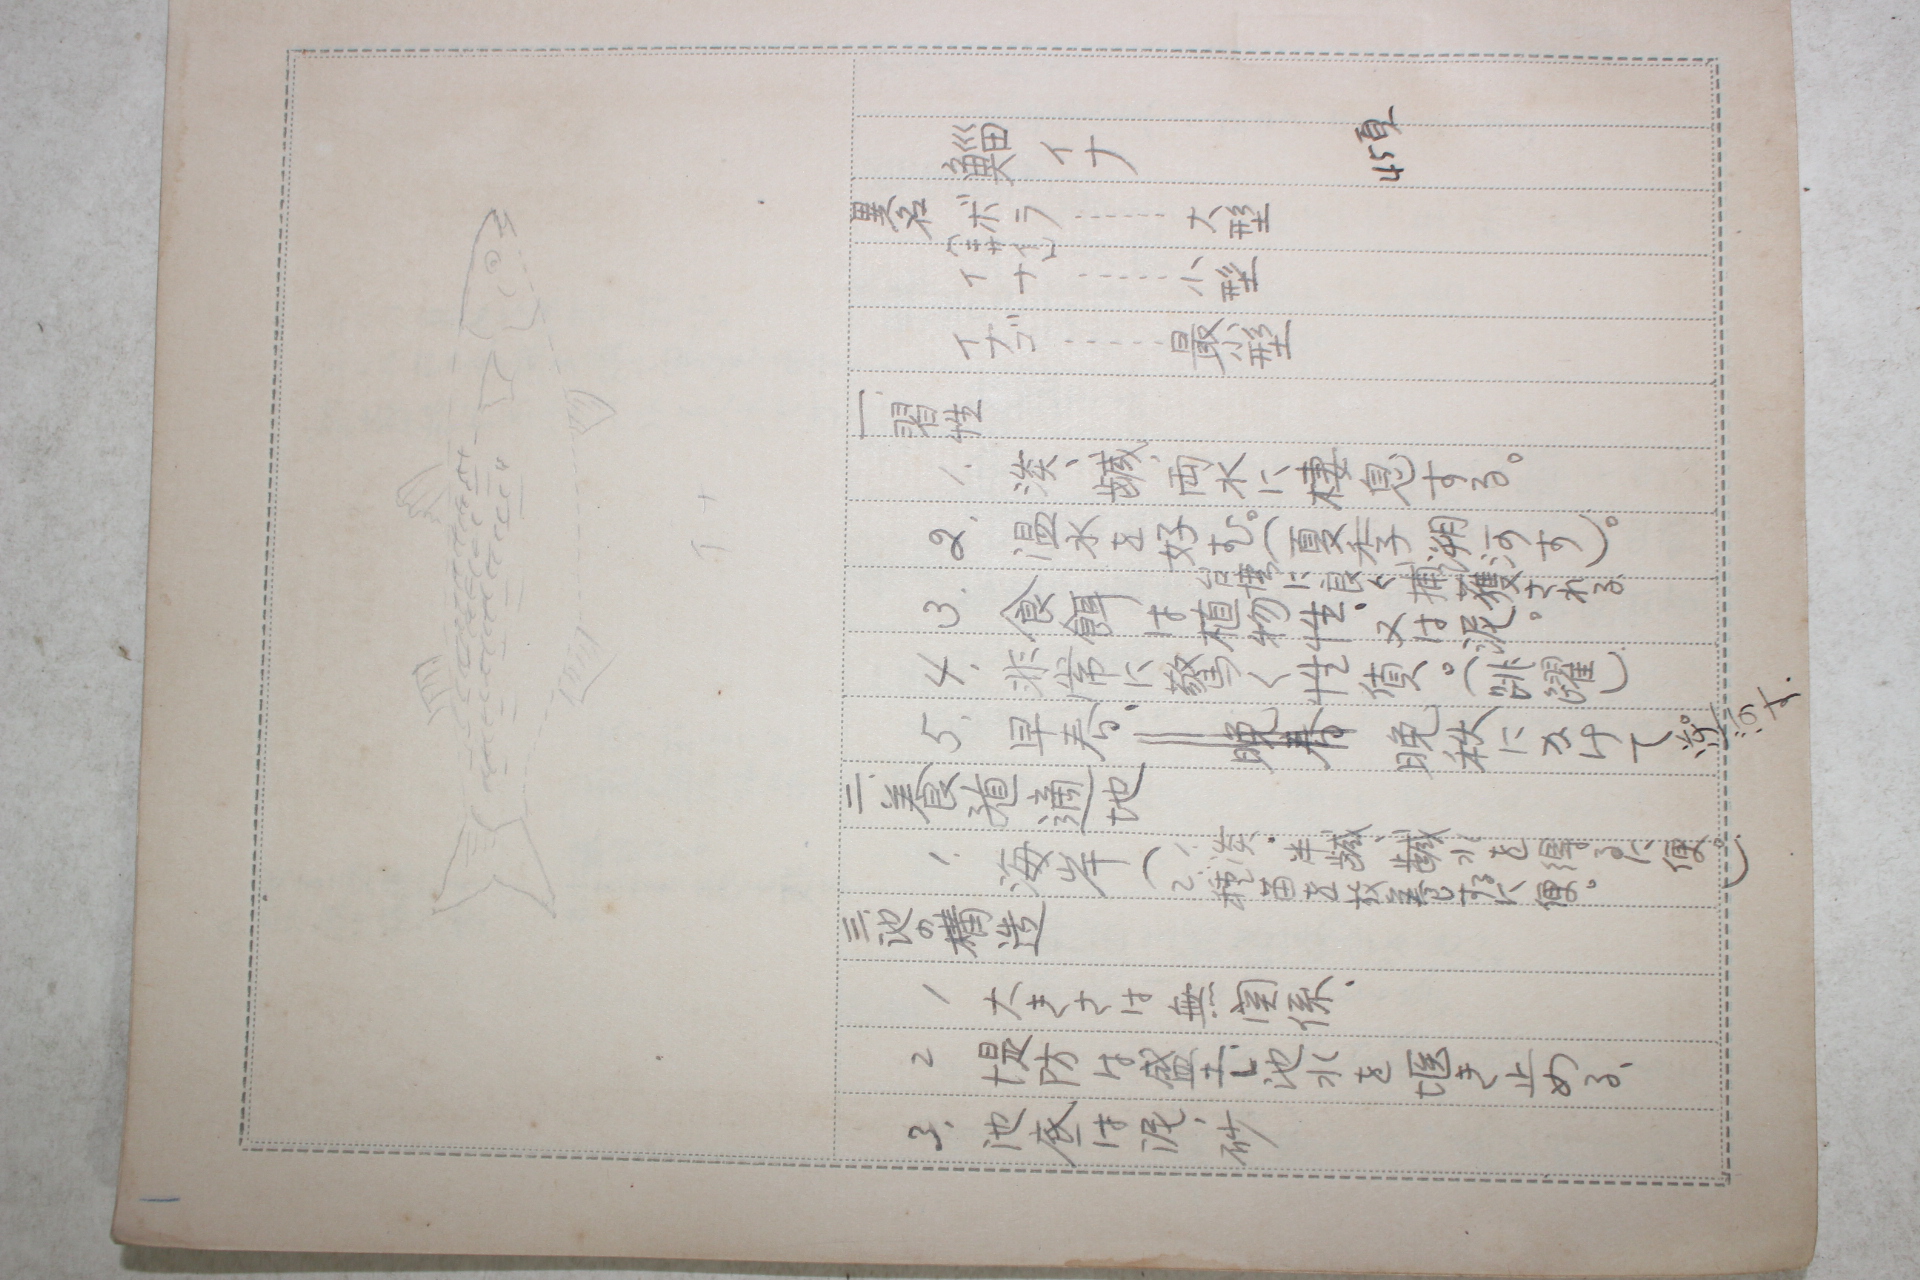 鯔 イナ 45頁
異名 ボラ……大型
イナ……小型
イナゴ……最小型
一、習性
1、淡、鹹、両水に棲息する。
2、温水を好む。(夏季溯河す)。
に良く捕獲される
3、食餌は植物性、又は泥。
4、非常に驚く性質。(跳躍)
5、早春、晩春 晩秋にかけて溯河す.
二、養殖適地
1、海岸
(1、淡、半鹹、鹹水を得るに便。)
2、種苗を放養するに便。
三、池の構造
1 大きさは無関係、
2 堤防は盛土し池水を堰き止める、
3、池底は泥、砂
イナ